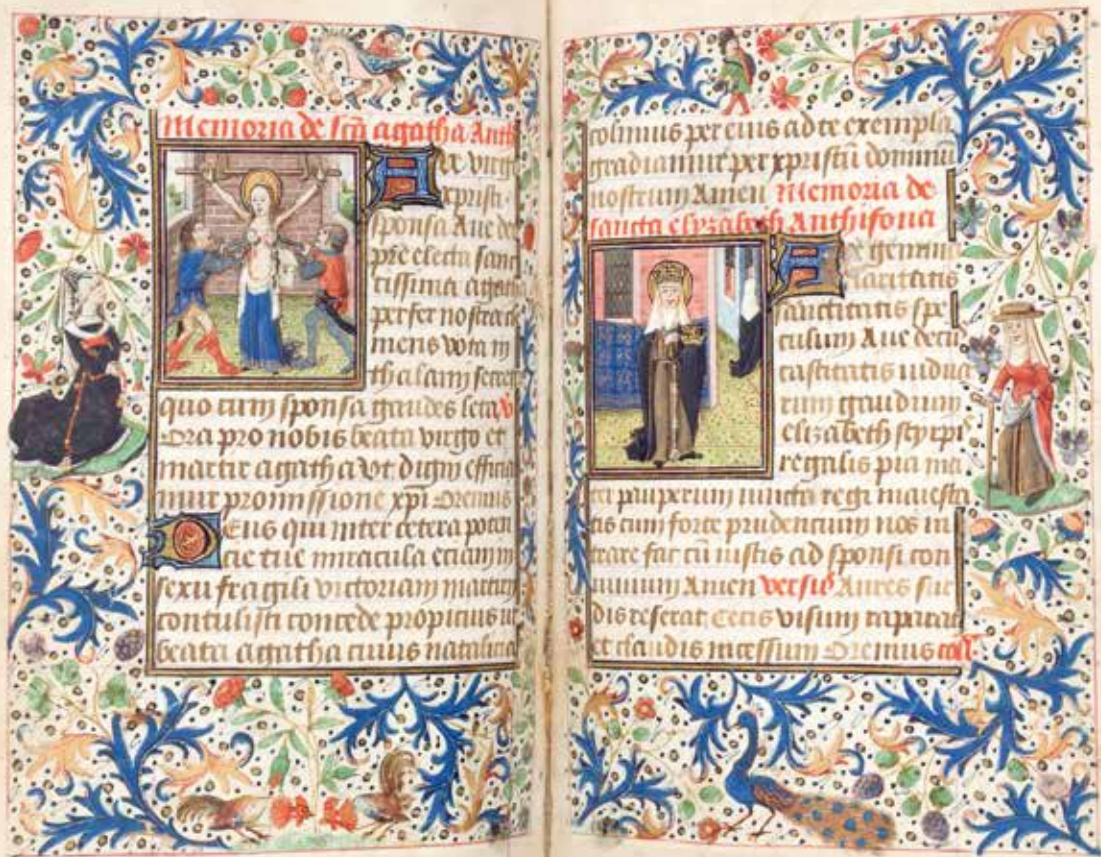 Memoria de scā agatha Anth
Ave virgo
xpristi
sponsa Ave dei
pre electa sanc
tissima agatha
perfer nostra
mens vota in
thalami secret
quo cum sponsa gaudes leta v
Ora pro nobis beata virgo et
martir agatha Vt digni efficia
mur promissione xpi Oremus
Deus qui inter cetera poten
cie tue miracula eciam in
sexu fragili victoriam martirii
contulisti concede propicius ut
beata agatha cuius natalicia
colimus per eius ad te exempla
gradiamur per xpristū dominū
nostrum Amen Memoria de
sancta elyzabeth Anthifona
Ave gemma
caritatis
sanctitatis spe
culum Ave decu
castitatis vidua
rum gaudium
elizabeth styrpis
regalis pia ma
ter pauperum iuncta regi maiesta
tis cum forte prudencium nos in
trare fac cū iustis ad sponsi con
uiuium Amen versus Aures sur
dis reserat Cecis visum
et claudis incessum Oremus